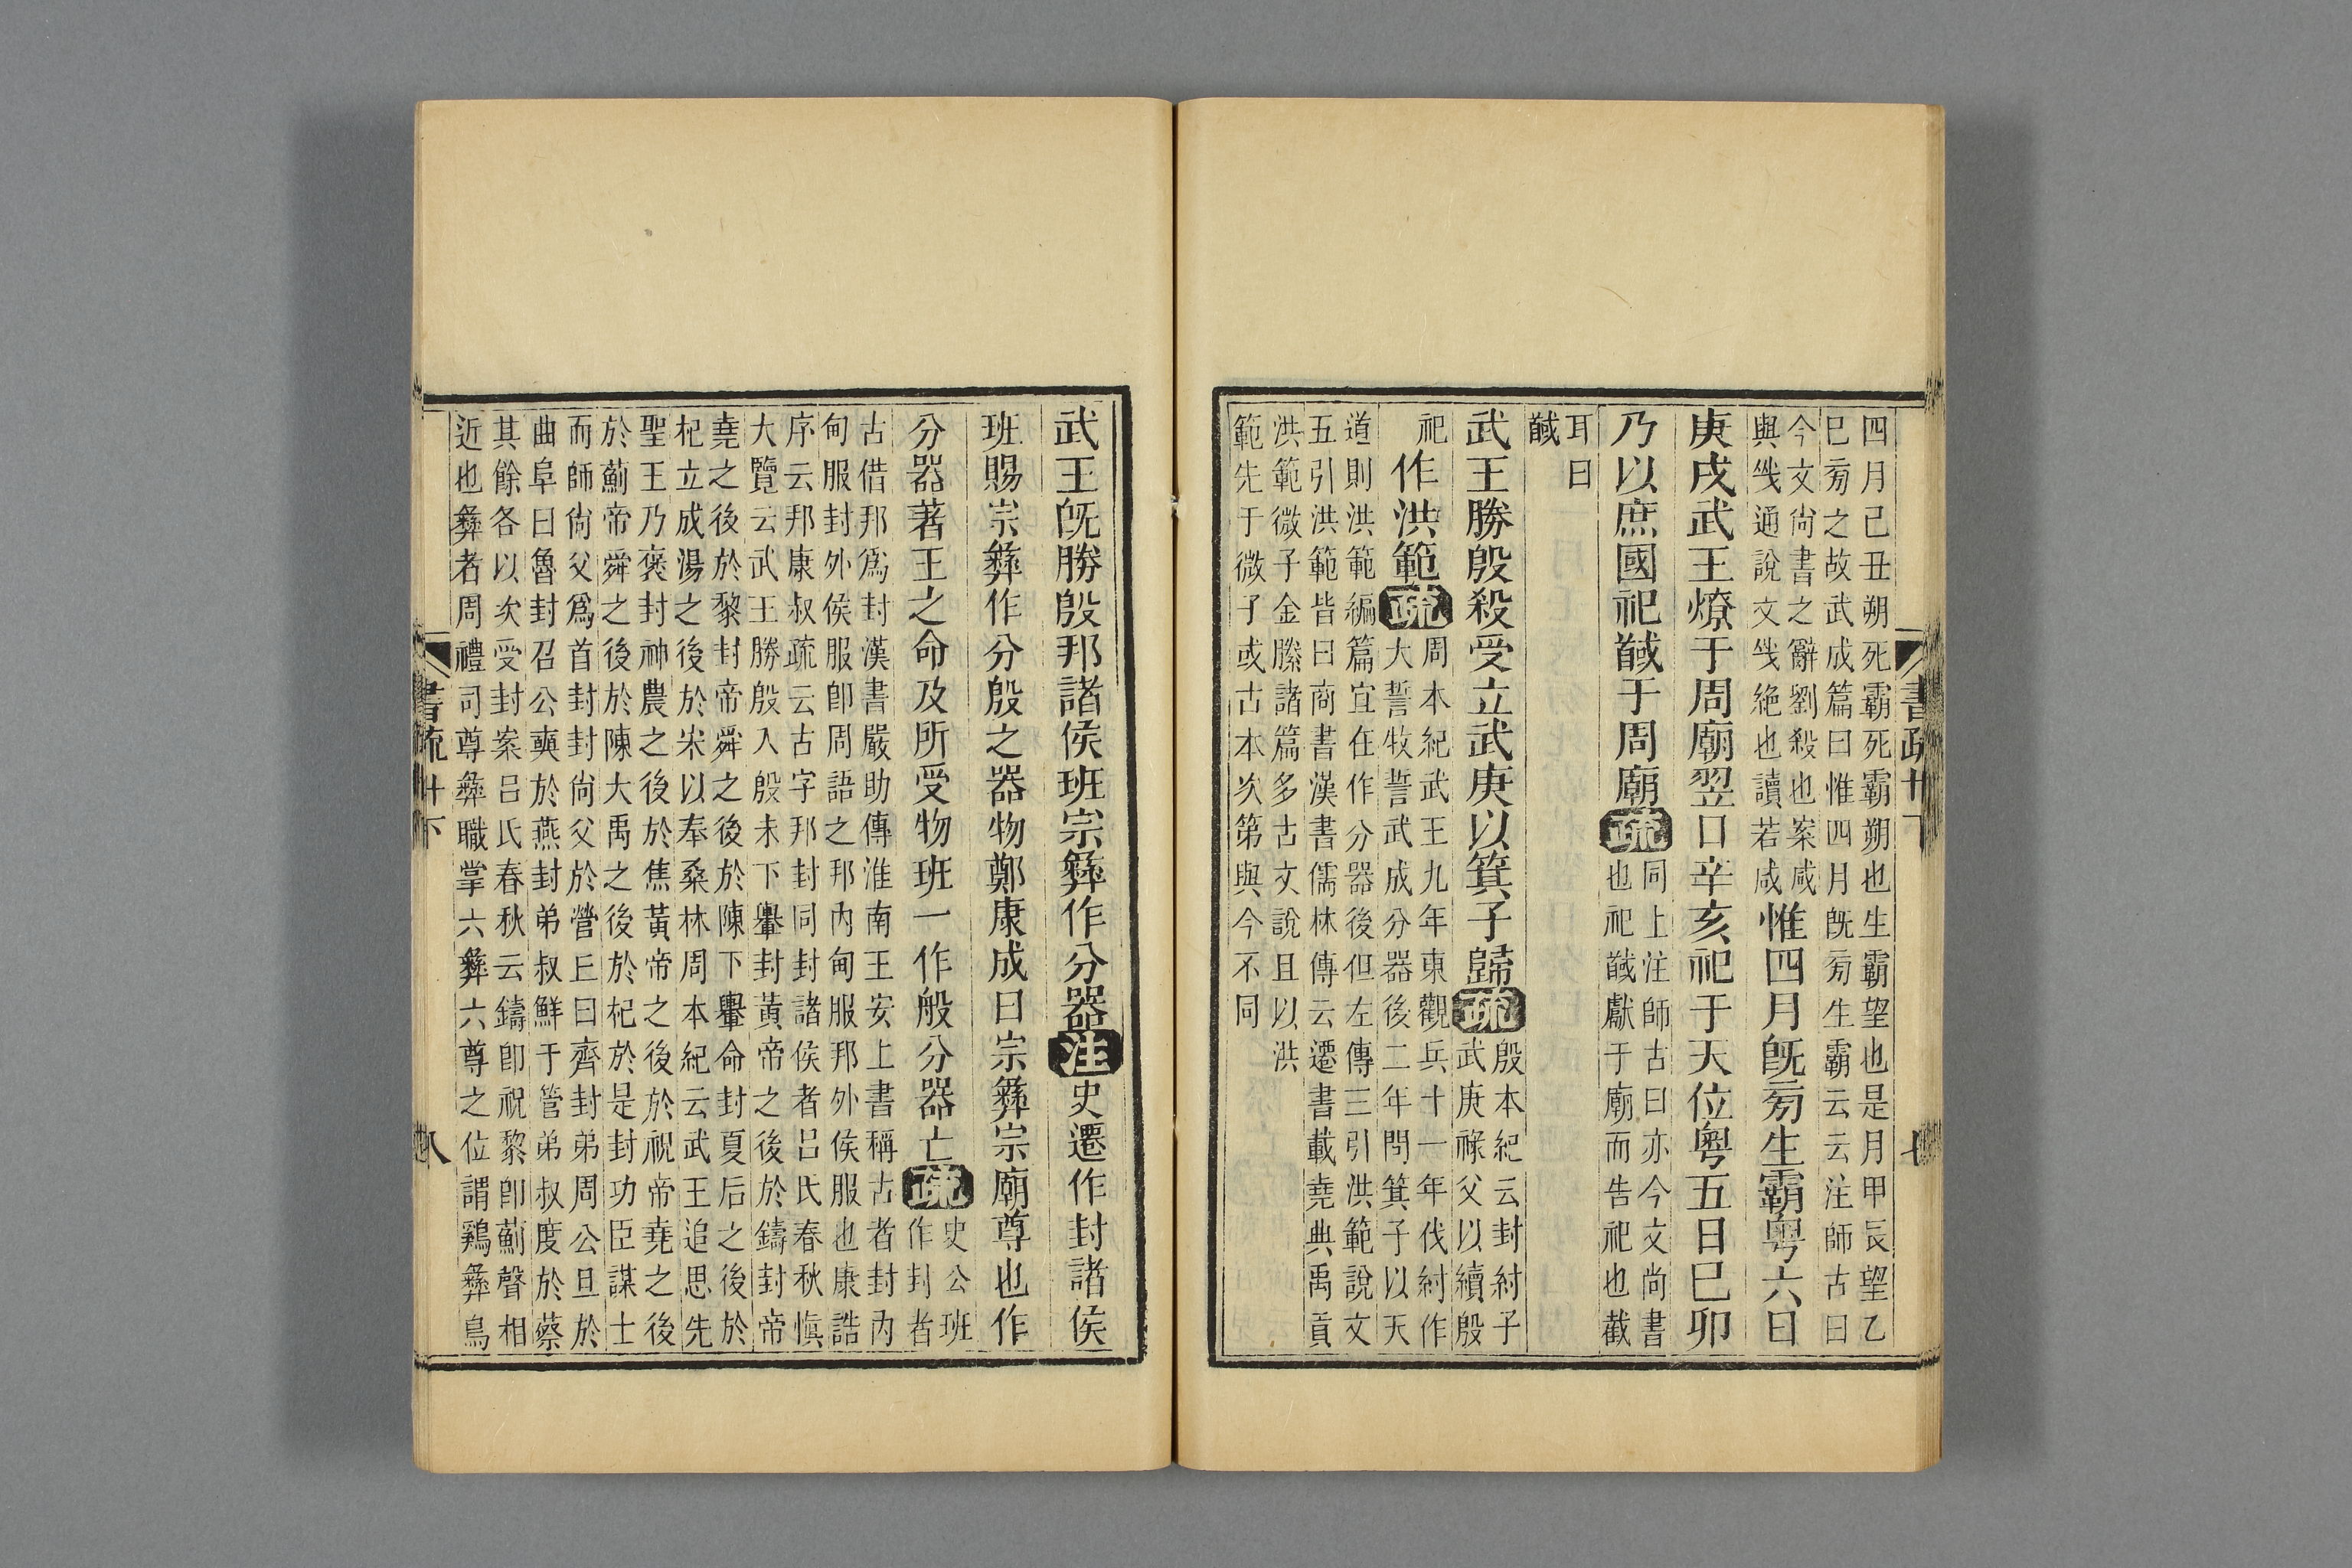 四月己丑朔死霸死霸朔也生霸望也是月甲辰望乙
巳旁之故武成篇曰惟四月旣旁生霸云云注師古曰
今文尙書之辭劉殺也案咸
與㦰通說文㦰絶也讀若咸
惟四月旣旁生霸粤六日
庚戌武王燎于周廟翌日辛亥祀于天位粤五日巳卯
乃以庶國祀馘于周廟疏
同上注師古曰亦今文尙書
也祀馘獻于廟而告祀也截
耳曰
馘
武王勝殷殺受立武庚以箕子歸疏
殷本紀云封紂子
武庚祿父以續殷
祀
作洪範疏
周本紀武王九年東觀兵十一年伐紂作
大誓牧誓武成分器後二年問箕子以天
道則洪範編篇宜在作分器後但左傳三引洪範說文
五引洪範皆曰商書漢書儒林傳云遷書載堯典禹貢
洪範微子金縢諸篇多古文說且以洪
範先于微子或古本次第與今不同
書疏卅下
七
武王旣勝殷邦諸侯班宗彝作分器注史遷作封諸侯
班賜宗彝作分殷之器物鄭康成曰宗彝宗廟尊也作
分器著王之命及所受物班一作般分器亡疏
史公班
作封者
古借邦爲封漢書嚴助傳淮南王安上書稱古者封內
甸服封外侯服卽周語之邦內甸服邦外侯服也康誥
序云邦康叔疏云古字邦封同封諸侯者呂氏春秋愼
大覽云武王勝殷入殷未下轝封黃帝之後於鑄封帝
堯之後於黎封帝舜之後於陳下轝命封夏后之後於
杞立成湯之後於宋以奉桑林周本紀云武王追思先
聖王乃褒封神農之後於焦黃帝之後於祝帝堯之後
於薊帝舜之後於陳大禹之後於杞於是封功臣謀士
而師尙父爲首封封尙父於營丘曰齊封弟周公旦於
曲阜曰魯封召公奭於燕封弟叔鮮于管弟叔度於蔡
其餘各以次受封案呂氏春秋云鑄卽祝黎卽薊聲相
近也彝者周禮司尊彝職掌六彝六尊之位謂鷄彝鳥
書疏卅下
八